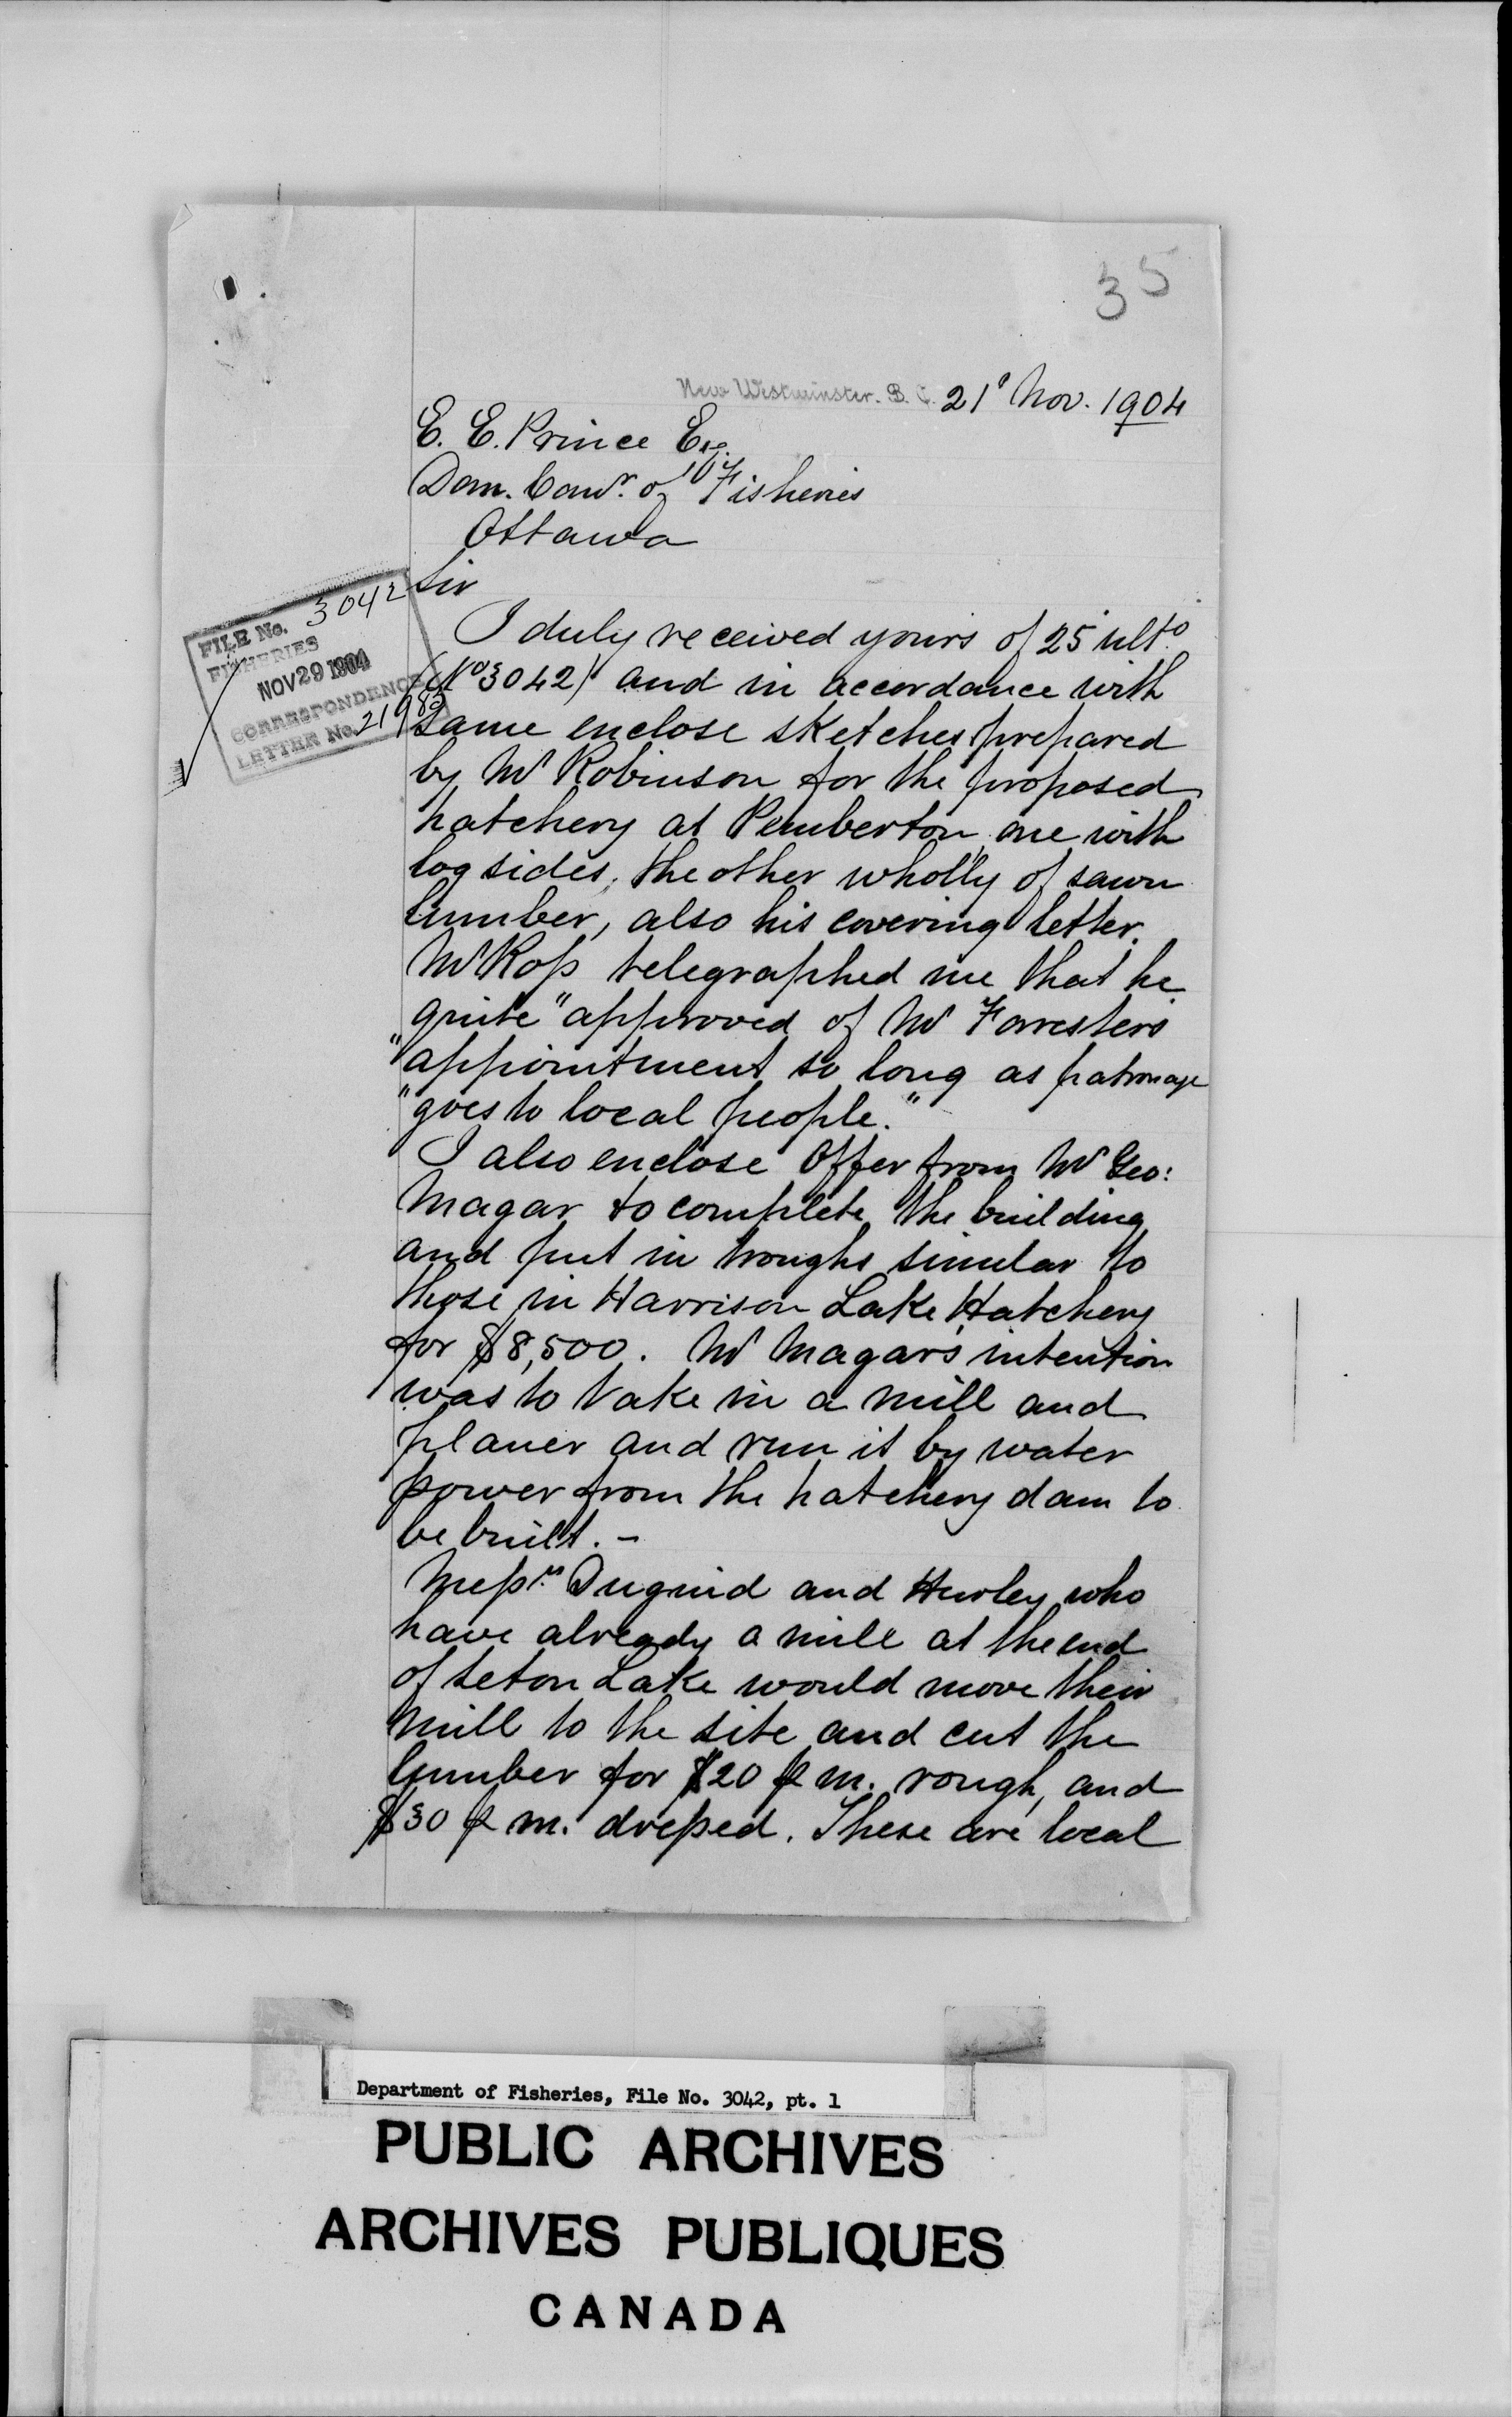 35
New Westminster. B. C. 21st Nov. 1904
E. E. Prince Esq.
Dom. Comr. of Fisheries
Ottawa
Sir
FILE No. 3042
FISHERIES
NOV 29 1904
CORRESPONDENCE
LETTER No. 21983
I duly received yours of 25 ulto.
(No 3042) and in accordance with
same enclose sketches prepared
by Mr Robinson for the proposed
hatchery at Pemberton, one with
log sides, the other wholly of sawn
lumber, also his covering letter.
Mr Ross telegraphed me that he
quite "approved of Mr Forresters
"appointment so long as patronage
"goes to local people."
I also enclose offer from Mr Geo:
Magar to complete the building
and put in troughs similar to
those in Harrison Lake Hatchery
for $8,500. Mr Magar's intention
was to take in a mill and
planer and run it by water
power from the hatchery dam to
be built. –
Messrs. Duguid and Hurley who
have already a mill at the end
of Seton Lake would move their
mill to the site and cut the
lumber for $20 p m. rough, and
$30 p m. dressed. These are local
Department of Fisheries, File No. 3042, pt. 1
PUBLIC ARCHIVES
ARCHIVES PUBLIQUES
CANADA